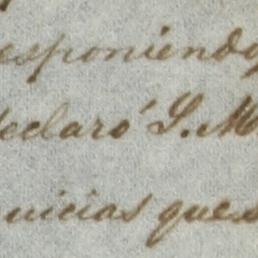 esponiendo
declaró S. M
uicias ques